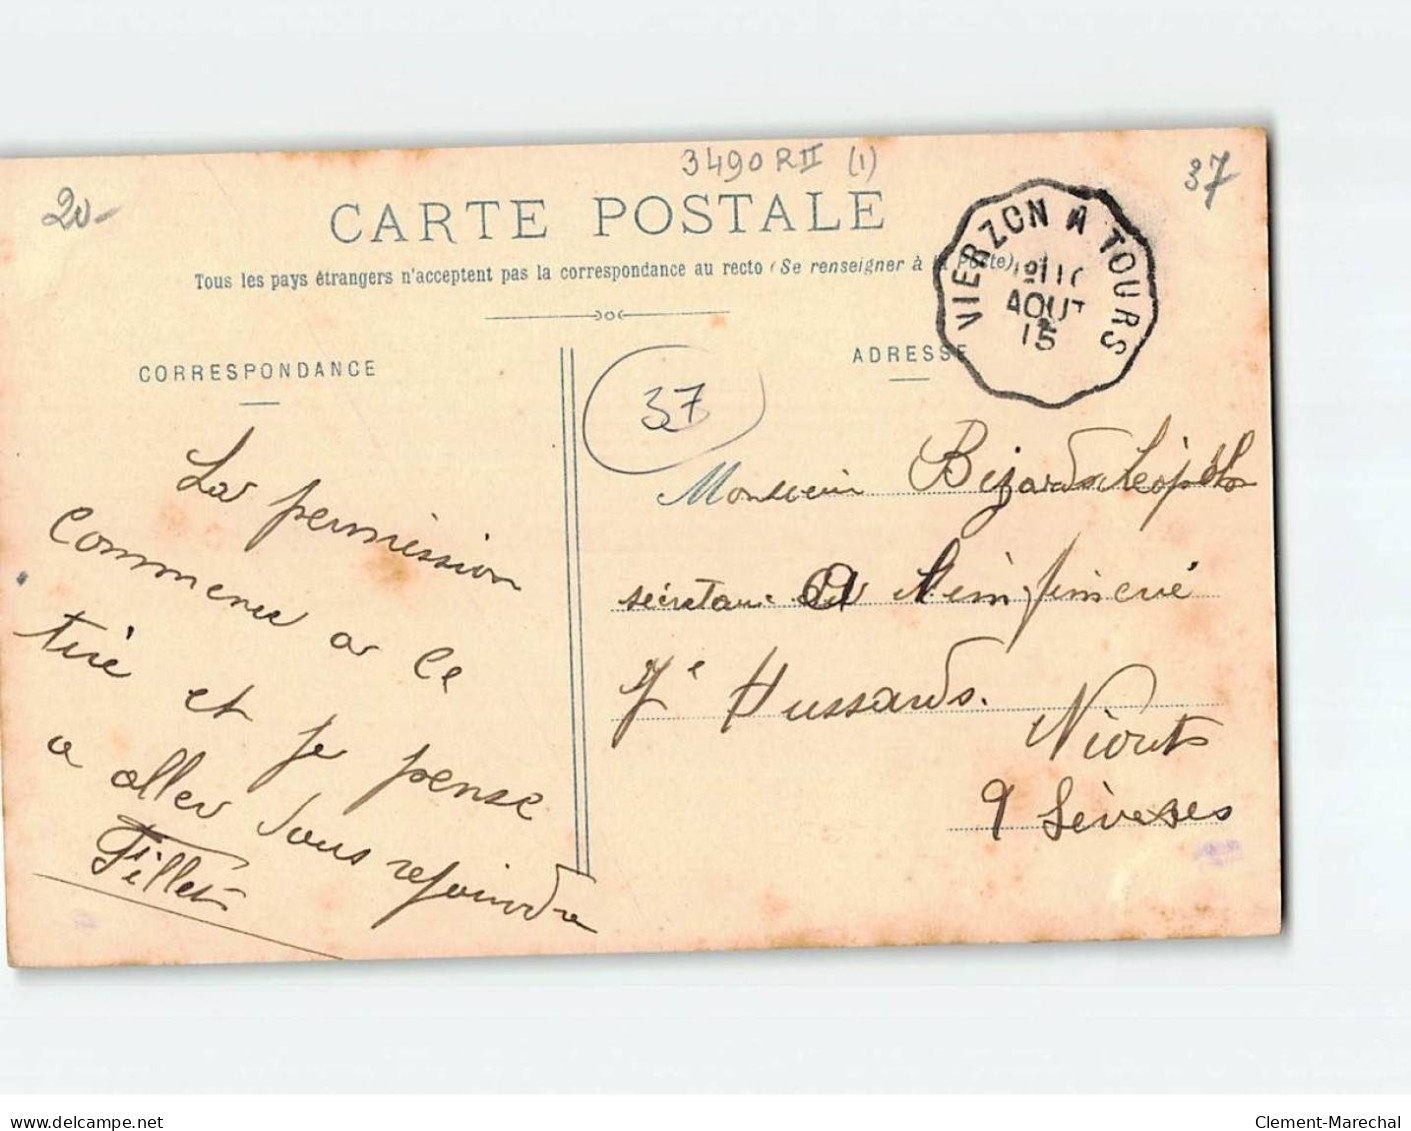 3490 R II (1)
37
20-
CARTE POSTALE
Tous les pays étrangers n'acceptent pas la correspondance au recto (Se renseigner à la Poste)
VIERZON A TOURS
AOUT
15
CORRESPONDANCE
ADRESSE
37
La permission
commence a ce
tiré et je pense
a aller vous rejoindre
Fillet
Monsieur Bizard Léopold
sécretaire a l'infirmerie
7e Hussards.
Niort
2 Sèvres
www.delcampe.net
Clement-Marechal